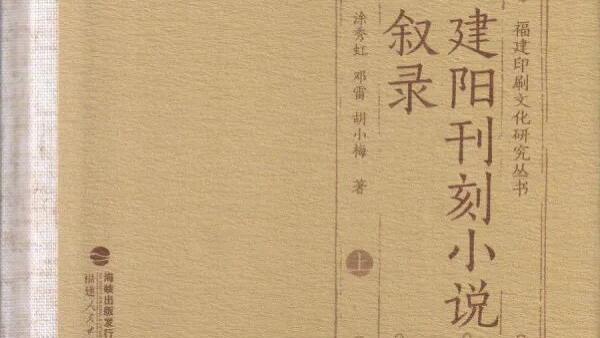 福建印刷文化研究丛书
建阳刊刻小说
叙录
涂秀虹 邓雷 胡小梅 著
上
海峡出版发行
福建人民